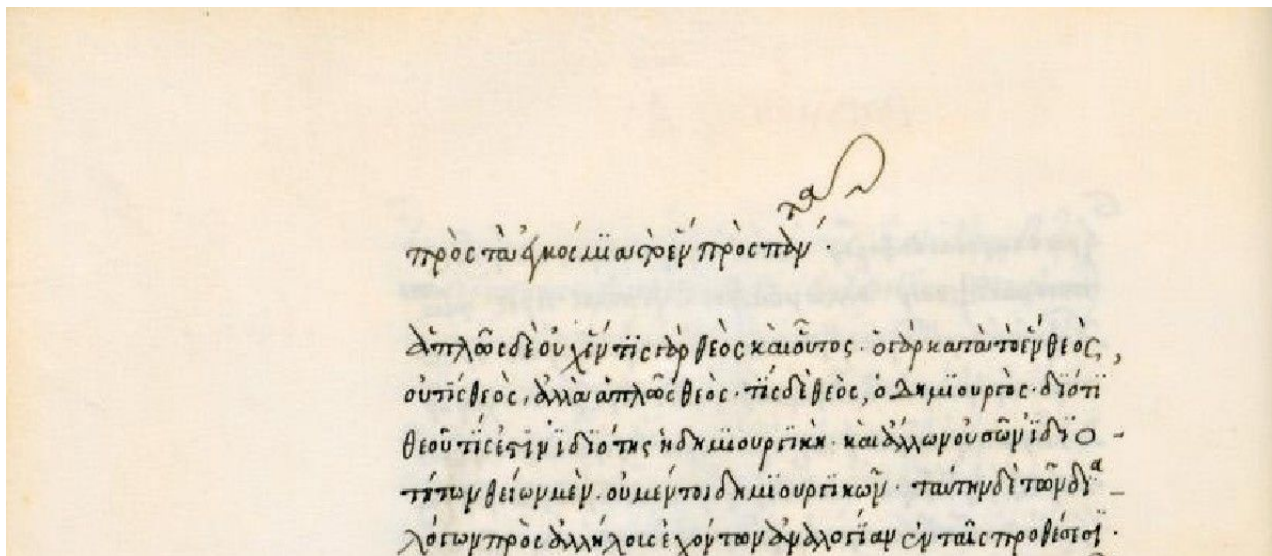 πρὸς τὰ ἐγκόσμια ὡς τὸ ἓν πρὸς
ἁπλῶς δὲ οὐχ ἕν τὶς γὰρ θεὸς καὶ οὗτος · ὁ γὰρ κατὰ τὸ ἓν θεὸς,
οὐ τὶς θεὸς, ἀλλὰ ἁπλῶς θεὸς · τὶς δὲ θεὸς, ὁ δημιουργὸς · διότι
θεοῦ τίς ἐστιν ἰδιότης ἡ δημιουργικὴ · καὶ ἄλλων οὐσῶν ἰδιο-
τήτων θείων μὲν, οὐ μέντοι δημιουργικῶν · ταύτην δὲ τῶν δια-
λόγων πρὸς ἀλλήλους ἐχόντων ἀναλογίαν ἐν ταῖς προθέσεσι ·